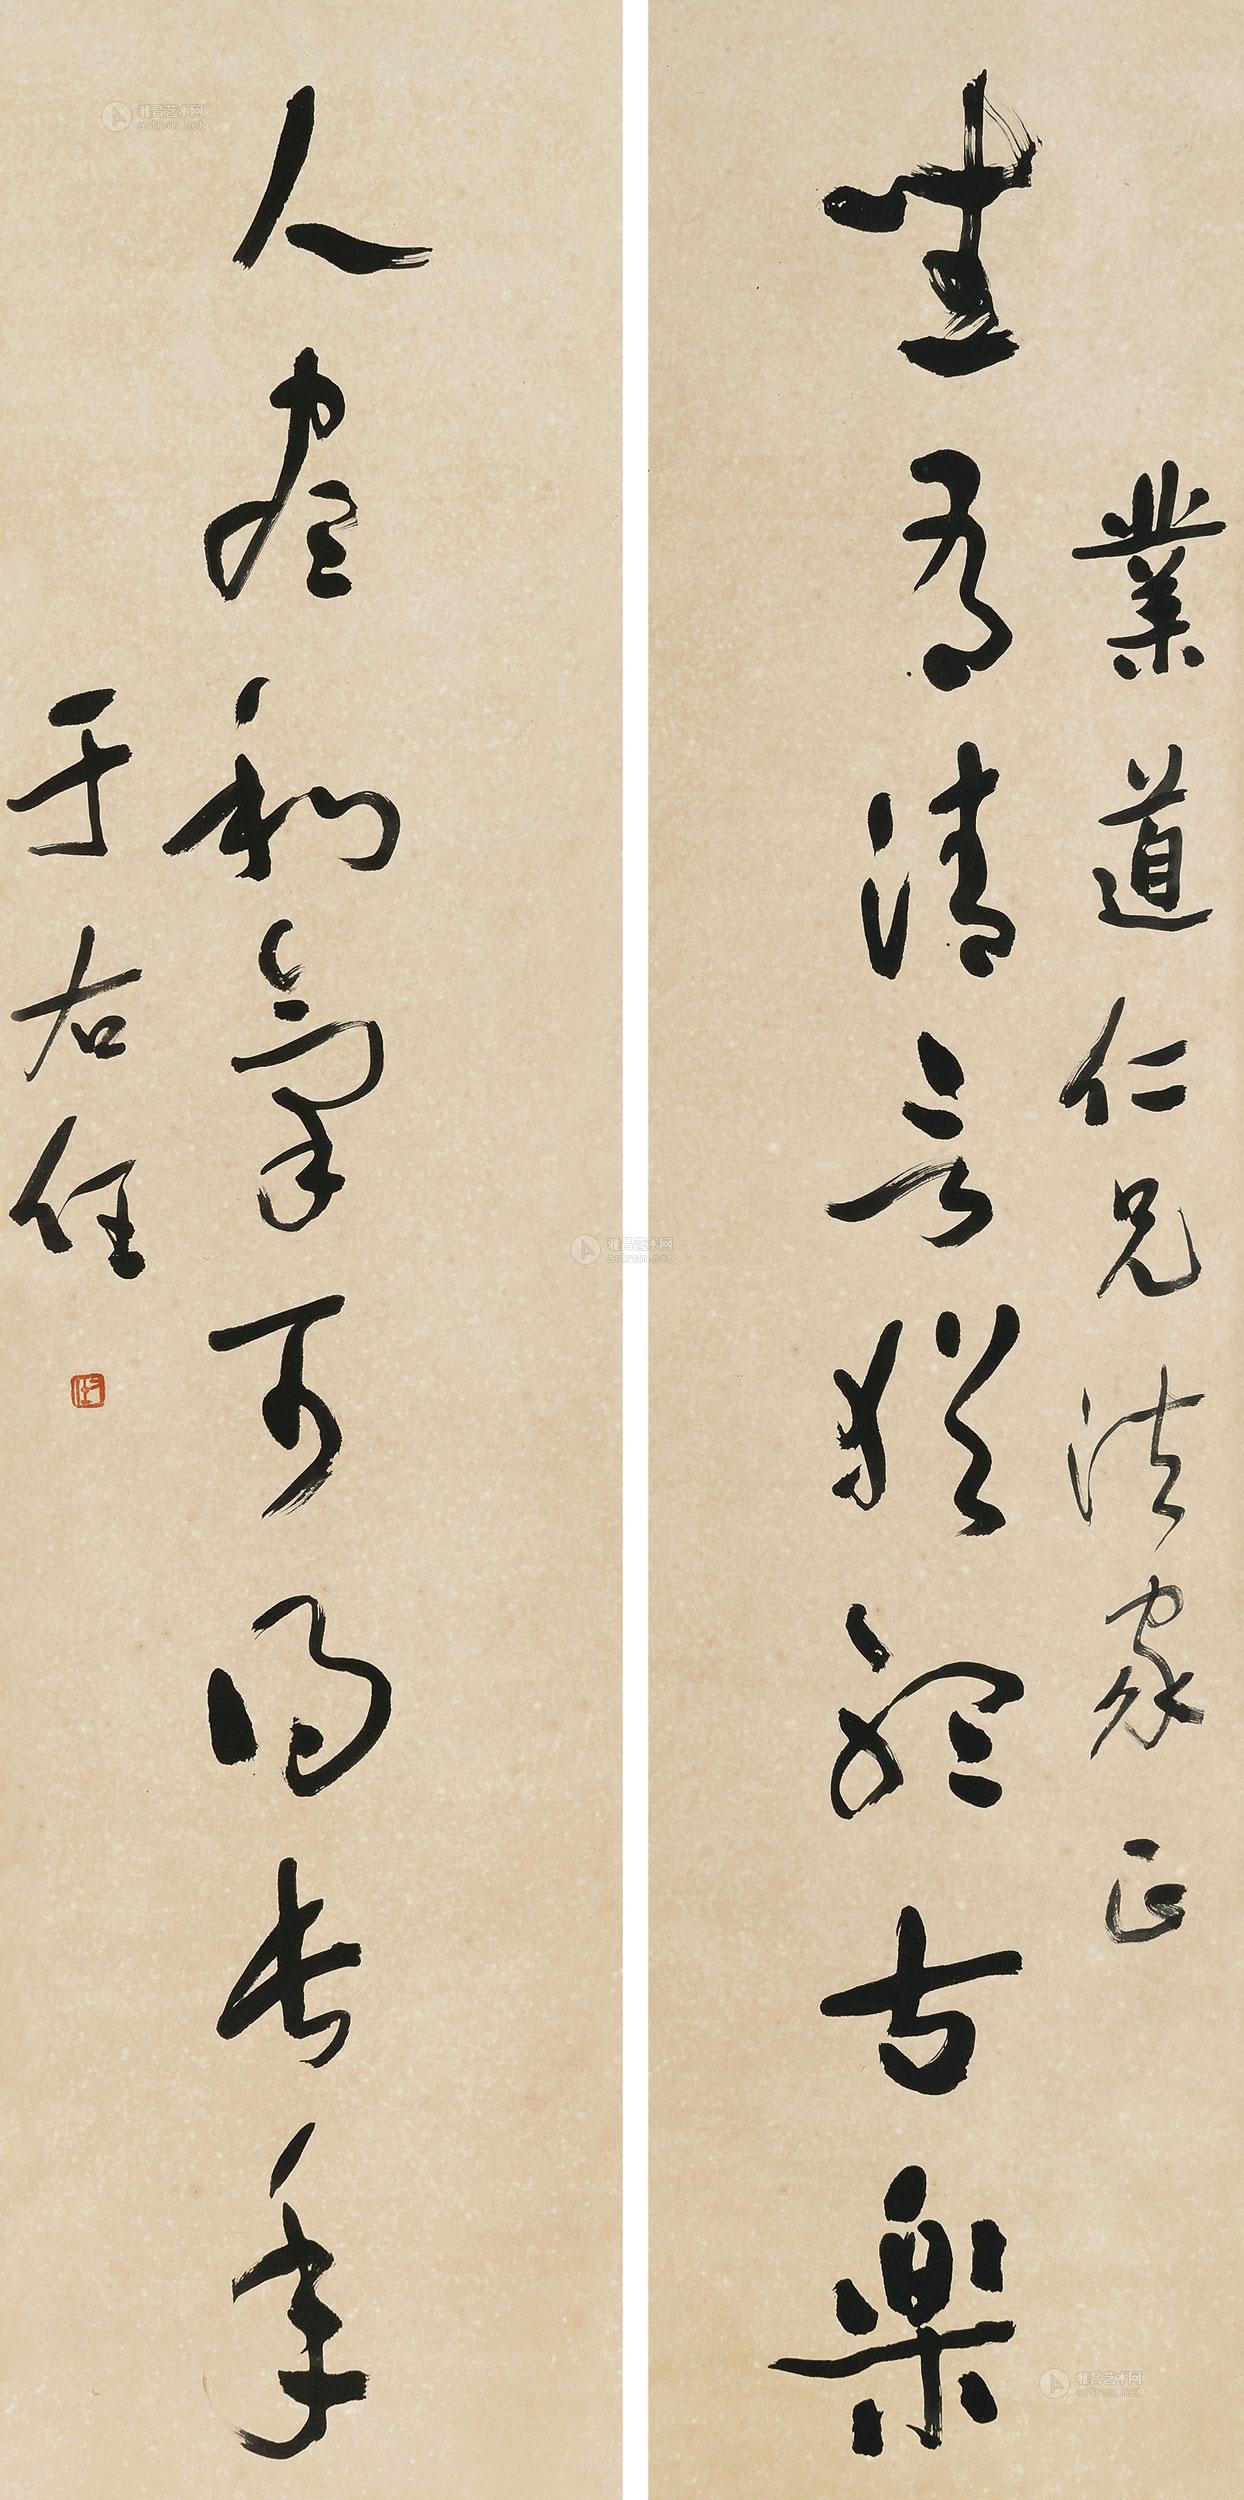 業道仁兄法家正
坐清言猶聽古樂
人和氣可得長年
于右任
右任
雅昌艺术网
artron.net
雅昌艺术网
artron.net
雅昌艺术网
artron.net